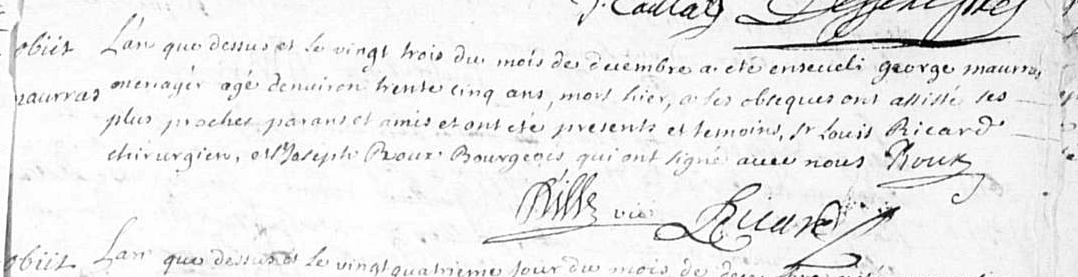 obiit L'an que dessus et le vingt trois du mois de decembre a eté enseveli george maurras
maurras menager agé denviron trente cinq ans, mort hier, a ses obseques ont assisté ses
plus proches parans et amis et ont eté presents et temoins, Sr Louis Ricard
chirurgien, et Sr Joseph Roux Bourgeois qui ont signé avec nous Roux
vic Ricard
obiit L'an que dessus et le vingt quatrieme jour du mois de